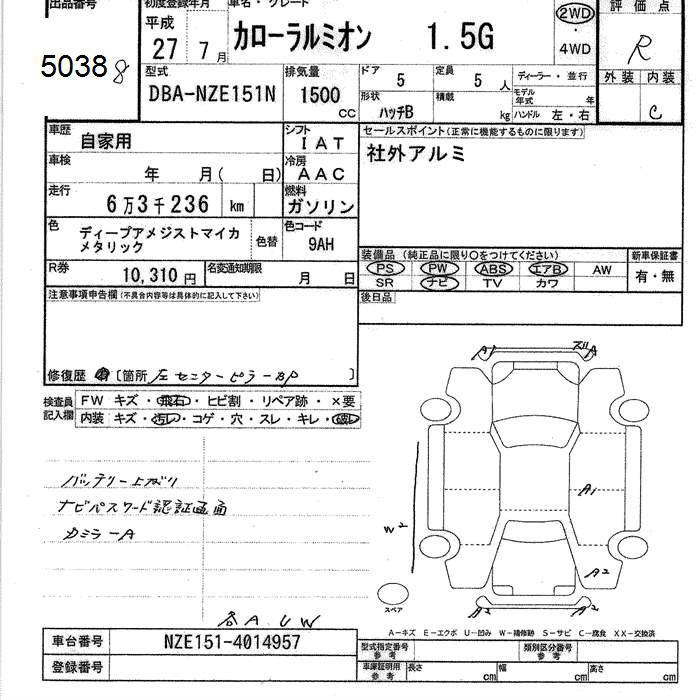 出品番号
50388
初度登録年月
平成
27 7月
車名・グレード
カローラルミオン 1.5G
2WD
・
4WD
評価点
R
型式
DBA-NZE151N
排気量
1500
CC
ドア
5
定員
5人
ディーラー・並行
形状
ハッチB
積載
kg
モデル年式
年
ハンドル 左・右
外装 内装
C
車歴
自家用
シフト
IAT
セールスポイント(正常に機能するものに限ります)
社外アルミ
車検
年 月( 日)
冷房
AAC
走行
6万3千236 km
燃料
ガソリン
色
ディープアメジストマイカメタリック
色替
色コード
9AH
装備品 (純正品に限り〇をつけてください)
新車保証書
PS PW ABS エアB AW
SR ナビ TV カワ
有・無
R券
10,310円
名変通知期限
月 日
後日品
注意事項申告欄(不具合内容等は具体的に記入して下さい)
修復歴 有 [箇所 左センターピラーBP ]
検査員記入欄
FW キズ・飛石・ヒビ割・リペア跡・×要
内装 キズ・汚レ・コゲ・穴・スレ・キレ・破レ
バッテリー上がり
ナビパスワード認証画面
ドミラーA
各A.UW
A1
ズA
A1
W2
A2
A2
A2
スペア
A-キズ E-エクボ U-凹み W-補修跡 S-サビ C-腐食 XX-交換済
車台番号
NZE151-4014957
登録番号
型式指定番号
参考
類別区分番号
参考
車庫証明用
参考
長さ
cm
幅
cm
高さ
cm